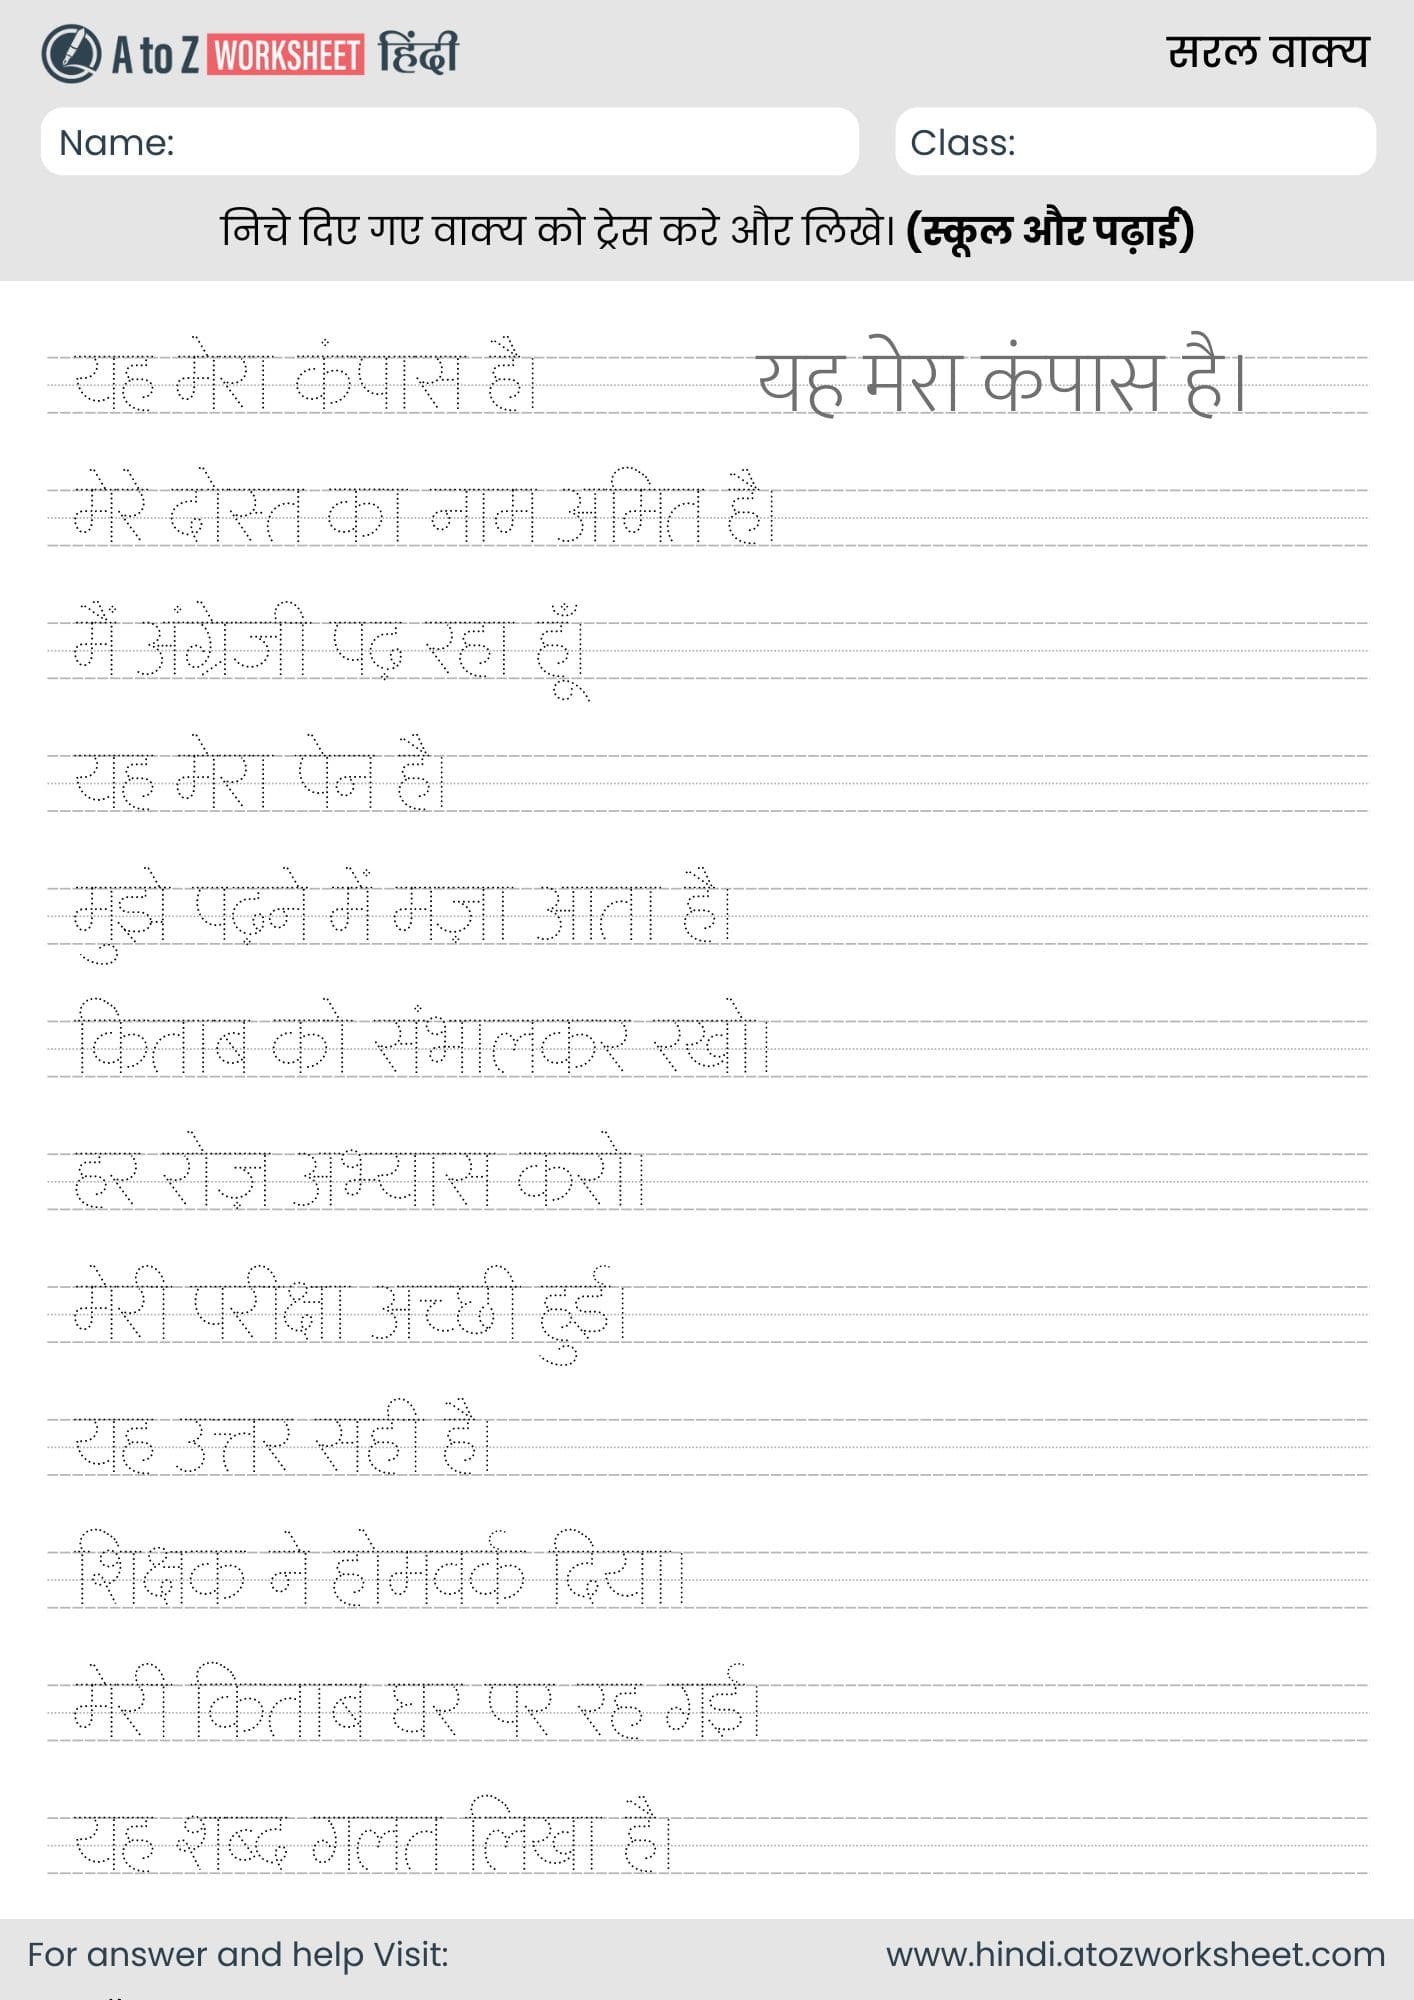 A to Z WORKSHEET हिंदी
सरल वाक्य
Name:
Class:
निचे दिए गए वाक्य को ट्रेस करे और लिखे। (स्कूल और पढ़ाई)
यह मेरा कंपास है। यह मेरा कंपास है।
मेरे दोस्त का नाम अमित है।
मैं अंग्रेजी पढ़ रहा हूँ।
यह मेरा पेन है।
मुझे पढ़ने में मज़ा आता है।
किताब को संभालकर रखो।
हर रोज़ अभ्यास करो।
मेरी परीक्षा अच्छी हुई।
यह उत्तर सही है।
शिक्षक ने होमवर्क दिया।
मेरी किताब घर पर रह गई।
यह शब्द गलत लिखा है।
For answer and help Visit:
www.hindi.atozworksheet.com